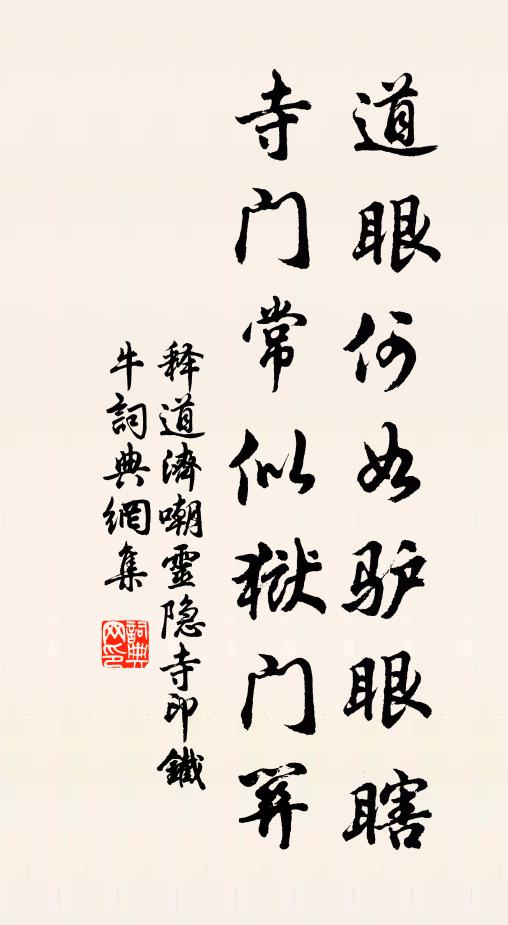 道眼何如驴眼瞎
寺门常似狱门开
释道济嘲靈隐寺印鐵
牛詞典網集
詞典
网印